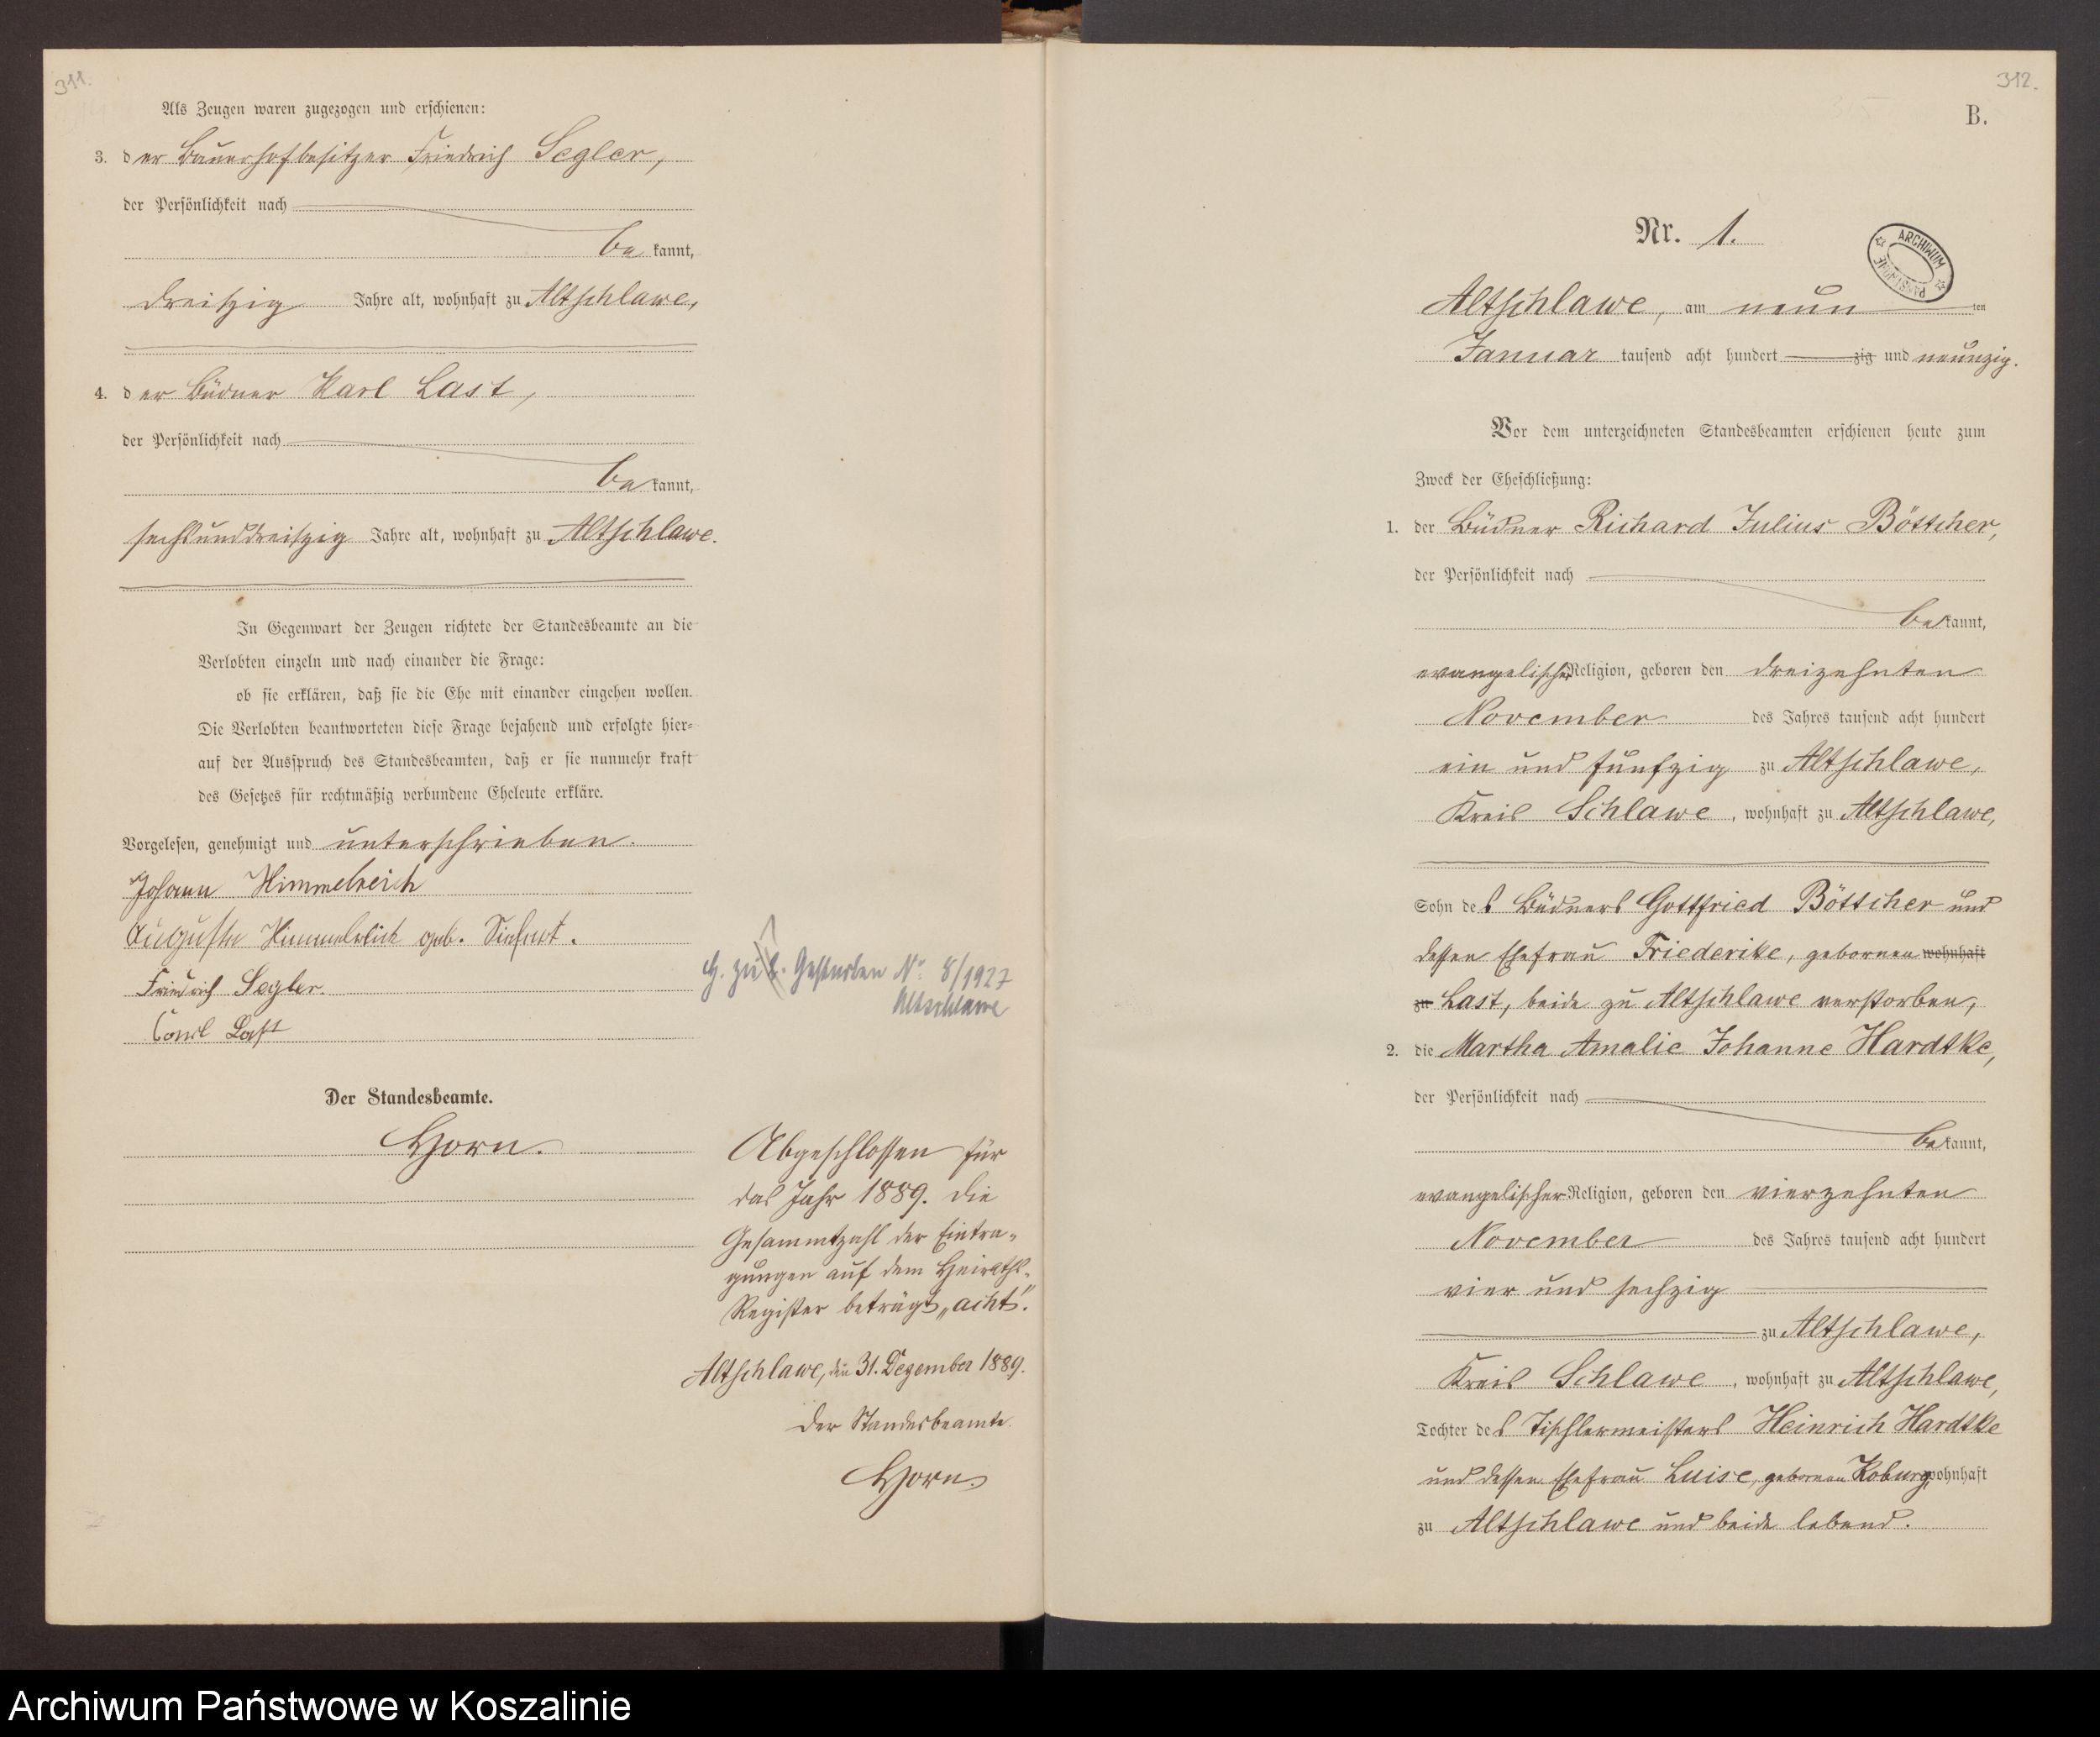 311.
Als Zeugen waren zugezogen und erschienen:
3. der Bauerhofbesitzer Friedrich Segler,
der Persönlichkeit nach
bekannt,
dreißig Jahre alt, wohnhaft zu Altschlawe,
4. der Büdner Karl Last,
der Persönlichkeit nach
bekannt,
sechsunddreißig Jahre alt, wohnhaft zu Altschlawe.
In Gegenwart der Zeugen richtete der Standesbeamte an die
Verlobten einzeln und nach einander die Frage:
ob sie erklären, daß sie die Ehe mit einander eingehen wollen.
Die Verlobten beantworteten diese Frage bejahend und erfolgte hier-
auf der Ausspruch des Standesbeamten, daß er sie nunmehr kraft
des Gesetzes für rechtmäßig verbundene Eheleute erkläre.
Vorgelesen, genehmigt und unterschrieben.
Johann Himmelreich
Auguste Himmelreich geb.
Friedrich Segler.
Carl Last
Der Standesbeamte.
Horn.
Gestorben No 8/1927
Altschlawe
Abgeschlossen für
das Jahr 1889. Die
Gesammtzahl der Eintra-
gungen auf dem Heiraths-
Register beträgt „acht".
Altschlawe, den 31. Dezember 1889.
Der Standesbeamte
Horn.
312.
B.
Nr. 1.
ARCHIWUM PAŃSTWOWE
Altschlawe, am neunten
Januar tausend acht hundert zig und neunzig.
Vor dem unterzeichneten Standesbeamten erschienen heute zum
Zweck der Eheschließung:
1. der Büdner Richard Julius Böttcher,
der Persönlichkeit nach
bekannt,
evangelischer Religion, geboren den dreizehnten
November des Jahres tausend acht hundert
ein und fünfzig zu Altschlawe,
Kreis Schlawe, wohnhaft zu Altschlawe,
Sohn des Büdners Gottfried Böttcher und
dessen Ehefrau Friederike, gebornen wohnhaft
zu Last, beide zu Altschlawe verstorben,
2. die Martha Amalie Johanne Hardtke,
der Persönlichkeit nach
bekannt,
evangelischer Religion, geboren den vierzehnten
November des Jahres tausend acht hundert
vier und sechzig
zu Altschlawe,
Kreis Schlawe, wohnhaft zu Altschlawe,
Tochter des Tischlermeisters Heinrich Hardtke
und dessen Ehefrau Luise, gebornen Koburg, wohnhaft
zu Altschlawe und beide lebend.
Archiwum Państwowe w Koszalinie